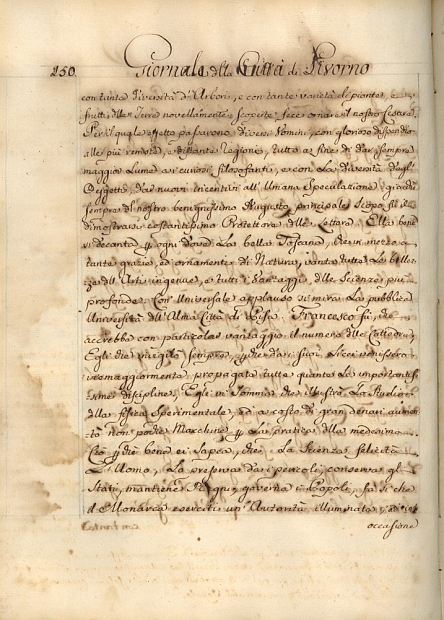 250. Giornale della Città di Livorno
con tanta diversità d'Arbori, e con tante varietà di piante, e
frutti delle Terre novellamente scoperte fece ornare il nostro Cesare,
Per il quale effetto passarono diversi Uomini, con glorioso dispendio
alle più remote, e distante regioni, tutto a fine di dar sempre
maggior Lume ai curiosi filosofanti, e con la diversità degli
Oggetti dar nuovi incentivi all'Umana Speculatione
sempre al nostro benignissimo Augusto principale Scopo
dimostrarsi costantissimo Protettore delle Lettere. Ella bene
si decanta ogni dove la bella Toscana, che in mezzo a
tante grazie, e ornamenti di Natura, vanta tutte le bellezze
dell'Arti ingenue, e tutti i vantaggi delle Scienze più
profonde. Con Universale applauso si mira la pubblica
Università dell'Alma Città di Pisa. Francesco fu, che
accrebbe con particolar vantaggio il numero delle Cattedre,
Egli che invigilò sempre,
maggiormente propagate tutte quante le importantissime
discipline, Egli in somma, che illustrò lo studio
della fisica Sperimentale, ed a costo di gran denari aumentò
non poche Macchine la pratica della medesima
che bene ei sapea, che la Scienza felicita
L'Uomo, lo preserva dai pericoli, conserva gli
Stati, mantiene i Regni, governa i Popoli, fa sì che
il Monarca eserciti un'Autorità illuminata
occasione